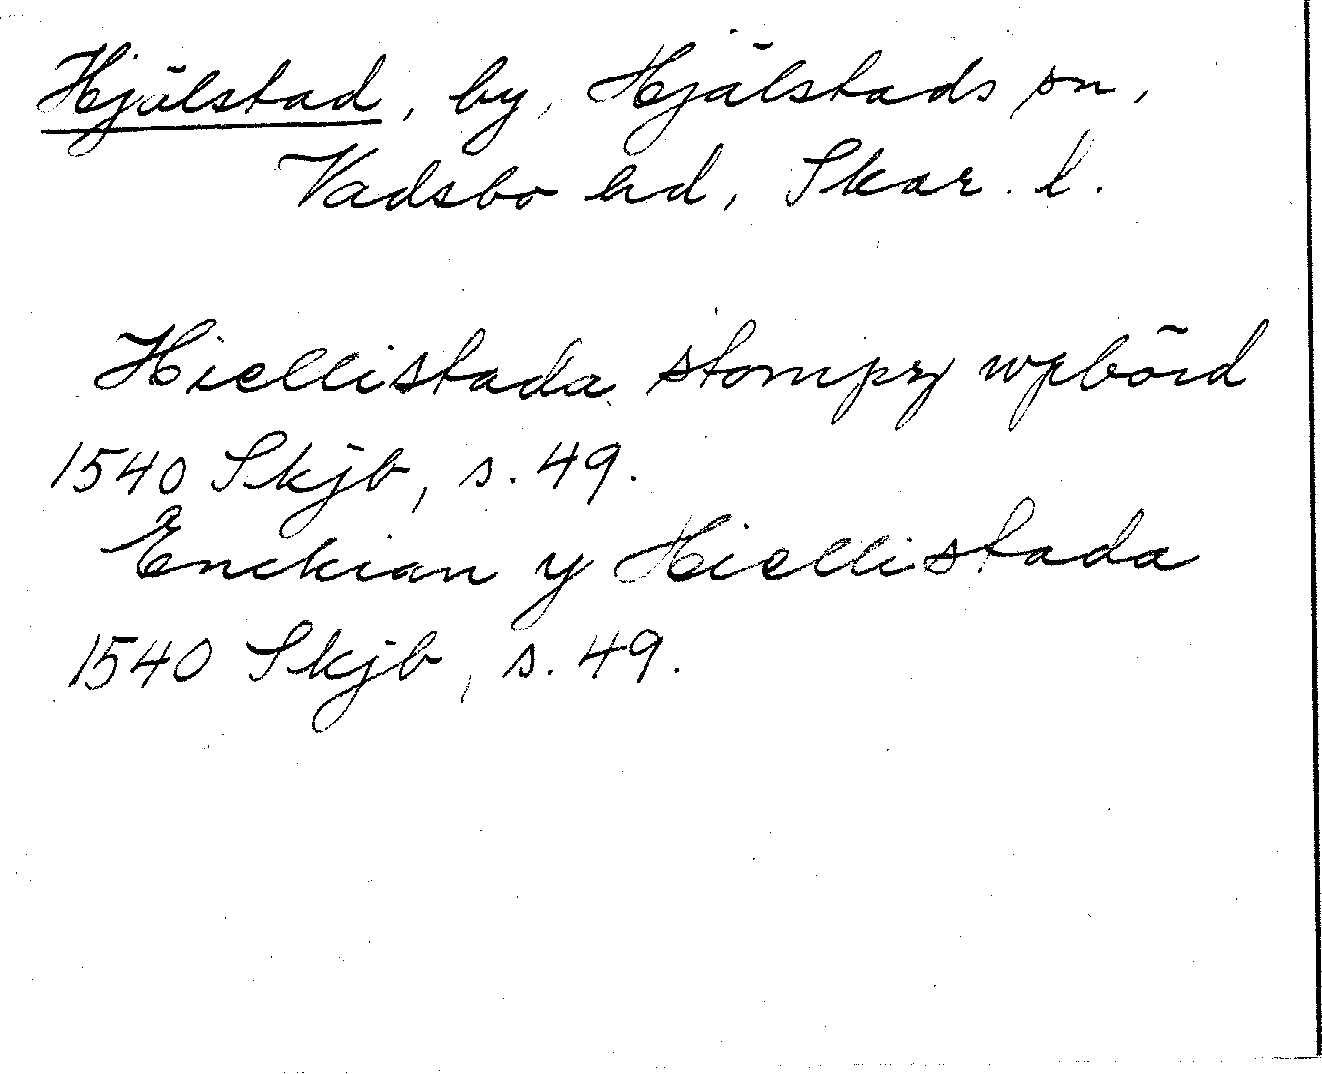 Hjälstad, by, Hjälstads sn,
Vadsbo hd, Skar. l.
Hiellistada stompn wpbörd
1540 Skjb, s. 49.
Enckian y Hiellistada
1540 Skjb, s. 49.